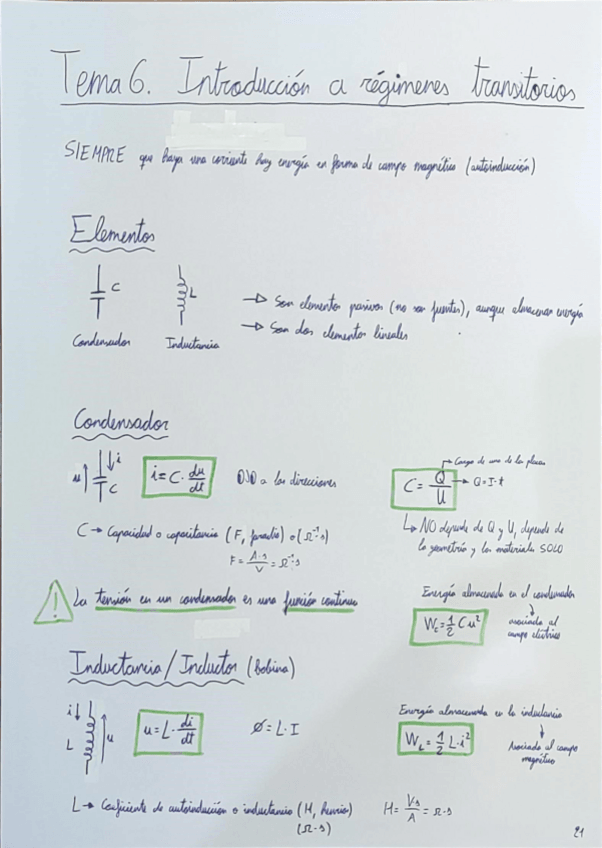 Tema 6. Introducción a régimenes transitorios
SIEMPRE que haya una corriente hay energía en forma de campo magnético (autoinducción)
Elementos
C
L
Condensador
Inductancia
→ Son elementos pasivos (no son fuentes), aunque almacenan energía
→ Son dos elementos lineales
Condensador
u ↑ ↓ i C
i = C · du/dt
OJO a las direcciones
C = Q/U
→ Carga de una de las placas
→ Q = I · t
↳ NO depende de Q y U, depende de
la geometría y los materiales SOLO
C → Capacidad o capacitancia (F, faradio) o (Ω⁻¹·s)
F = A·s/V = Ω⁻¹·s
! La tensión en un condensador es una función continua
Energía almacenada en el condensador
W_c = 1/2 C u²
asociada al
campo eléctrico
Inductancia/Inductor (bobina)
i ↓ L ↑ u
u = L · di/dt
Ø = L · I
Energía almacenada en la inductancia
W_L = 1/2 L · i²
Asociada al campo
magnético
L → Coeficiente de autoinducción o inductancia (H, henrio)
(Ω·s)
H = V·s/A = Ω·s
21